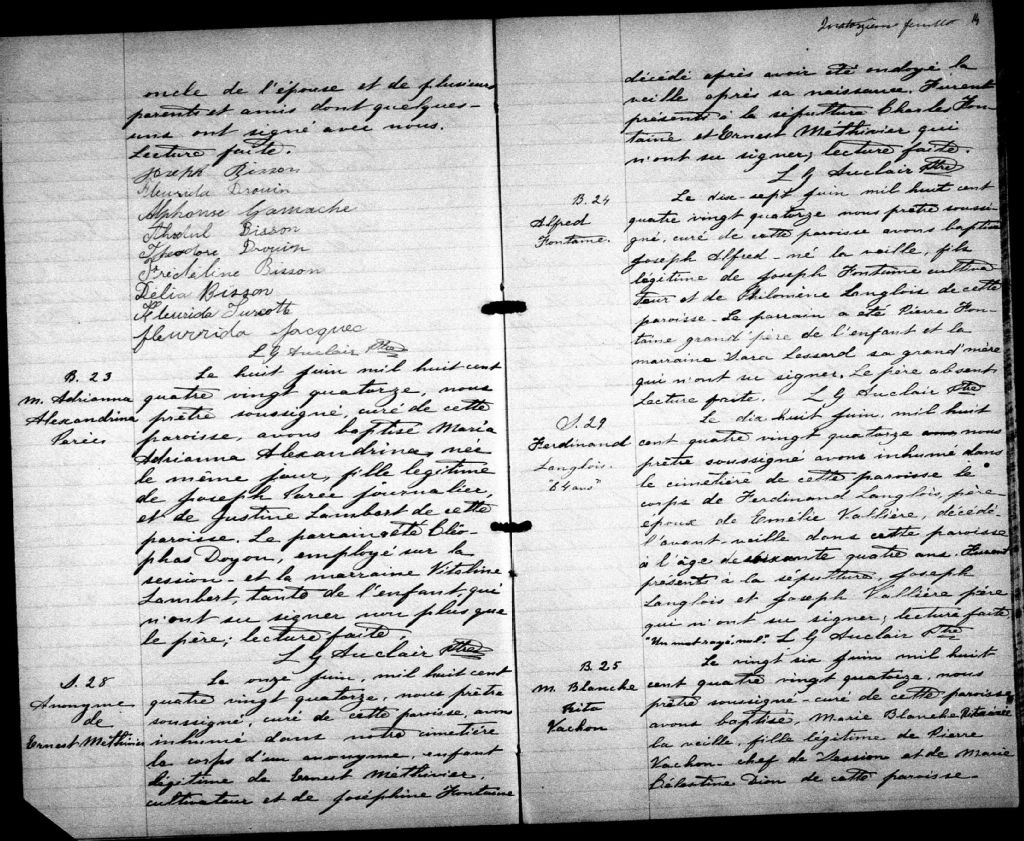 oncle de l'épouse et de plusieurs
parents et amis dont quelques-
uns ont signé avec nous.
Lecture faite.
Joseph Bisson
Fleurida Drouin
Alphonse Gamache
Bisson
Théodore Drouin
Bisson
Délia Bisson
Fleurida Turcott
fleurida Jacques
L G Auclair Ptre
B. 23
M. Adrianna
Alexandrina
Parée
Le huit juin mil huit cent
quatre vingt quatorze, nous
prêtre soussigné, curé de cette
paroisse, avons baptisé Maria
Adrianna Alexandrina, née
le même jour, fille légitime
de Joseph Parée journalier,
et de Justine Lambert de cette
paroisse. Le parrain été Cléo-
phas Doyon, employé sur la
session - et la marraine Vitaline
Lambert, tante de l'enfant, qui
n'ont su signer non plus que
le père; lecture faite,
L G Auclair Ptre
S. 28
Anonyme
de
Ernest Methivier
Le onze juin, mil huit cent
quatre vingt quatorze, nous prêtre
soussigné, curé de cette paroisse, avons
inhumé dans notre cimetière
le corps d'un anonyme, enfant
légitime de Ernest Methivier,
cultivateur et de Joséphine Fontaine
Quatorzième feuillet 14
décédé après avoir été ondoyé la
veille après sa naissance. Furent
présents à la sépulture Charles Fon-
taine et Ernest Methivier qui
n'ont su signer; lecture faite.
L G Auclair Ptre
B. 24
Alfred
Fontaine.
Le dix-sept juin mil huit cent
quatre vingt quatorze nous prêtre soussi-
gné, curé de cette paroisse avons baptisé
Joseph Alfred - né la veille, fils
légitime de Joseph Fontaine cultiva
teur et de Philomène Langlois de cette
paroisse. Le parrain a été Pierre Fon-
taine grand'père de l'enfant et la
marraine Sara Lessard sa grand'mère
qui n'ont su signer. Le père absent
Lecture faite. L G Auclair Ptre
S. 29
Ferdinand
Langlois.
"64 ans"
Le dix-huit juin, mil huit
cent quatre vingt quatorze nous
prêtre soussigné avons inhumé dans
le cimetière de cette paroisse le
corps de Ferdinand Langlois,
époux de Emélie Vallière, décédé
l'avant-veille dans cette paroisse
à l'âge de soixante quatre ans. Furent
présents à la sépulture, Joseph
Langlois et Joseph Vallière père
qui n'ont su signer; lecture faite
"Un mot rayé nul". L G Auclair Ptre
B. 25
M. Blanche
Rita
Vachon
Le vingt six juin mil huit
cent quatre vingt quatorze, nous
prêtre soussigné - curé de cette paroisse
avons baptisé, Marie Blanche Rita née
la veille, fille légitime de Pierre
Vachon - chef de Session et de Marie
Célestine Dion de cette paroisse.